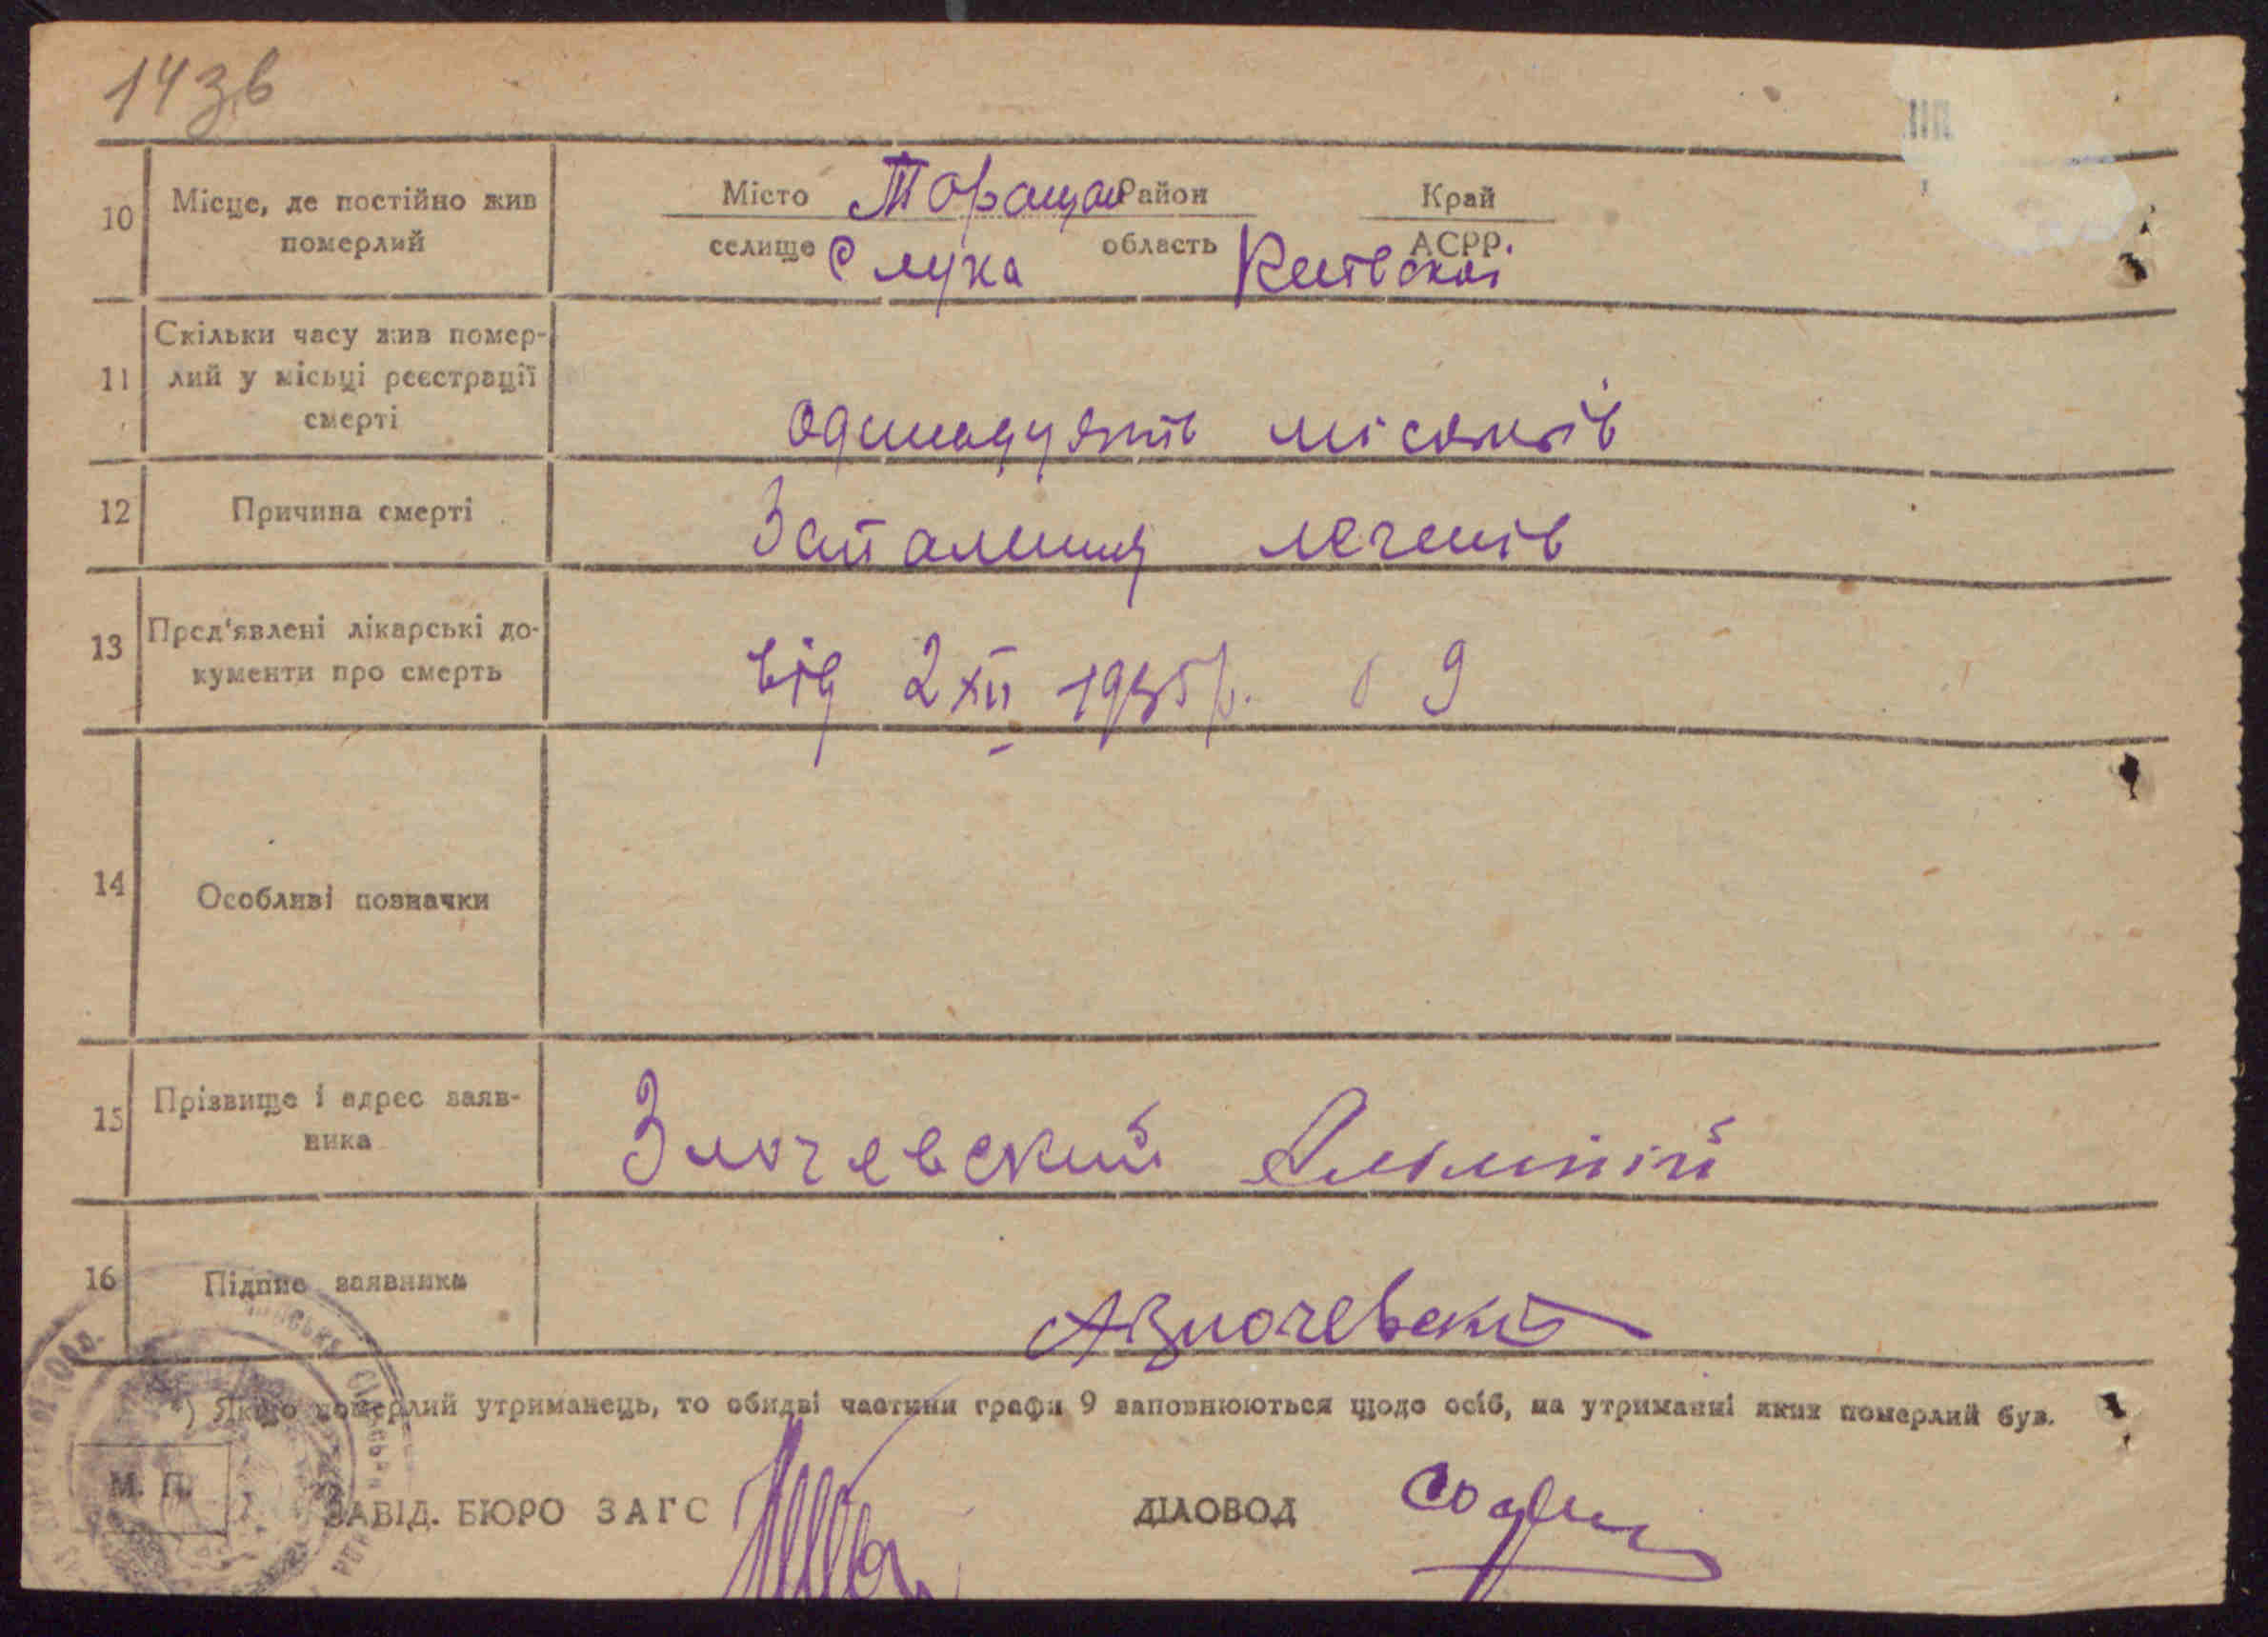 14зв
10 Місце, де постійно жив Місто Тараща Район Край
померлий селище Лука область Київської АСРР.
Скільки часу жив помер-
11 лий у місьці реєстрації
смерті одинадцять місяців
12 Причина смерті Запалення легенів
13 Пред'явлені лікарські до-
кументи про смерть від 2 XII 1935 р. 9
14 Особливі позначки
15 Прізвище і адрес заяв-
ника Злочевский
16 Підпис заявника АЗлочевский
*) Якщо померлий утриманець, то обидві частини графи 9 заповнюються щодо осіб, на утриманні яких померлий був.
М. П.
ЗАВІД. БЮРО ЗАГС ДІЛОВОД